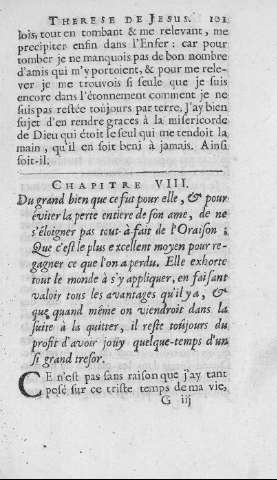 THERESE DE JESUS. 101
lois, tout en tombant & me relevant, me
precipiter enfin dans l'Enfer: car pour
tomber je ne manquois pas de bon nombre
d'amis qui m'y portoient, & pour me rele-
ver je me trouvois si seule que je suis
encore dans l'étonnement comment je ne
suis pas restée toûjours par terre. J'ay bien
sujet d'en rendre graces à la misericorde
de Dieu qui étoit le seul qui me tendoit la
main, qu'il en soit beni à jamais. Ainsi
soit-il.
CHAPITRE VIII.
Du grand bien que ce fut pour elle, & pour
éviter la perte entiere de son ame, de ne
s'éloigner pas tout-à-fait de l'Oraison;
Que c'est le plus excellent moyen pour re-
gagner ce que l'on a perdu. Elle exhorte
tout le monde à s'y appliquer, en faisant
valoir tous les avantages qu'il y a, &
que quand même on viendroit dans la
suite à la quitter, il reste toûjours du
profit d'avoir jouy quelque-temps d'un
si grand tresor.
CE n'est pas sans raison que j'ay tant
pesé sur ce triste temps de ma vie,
G iij